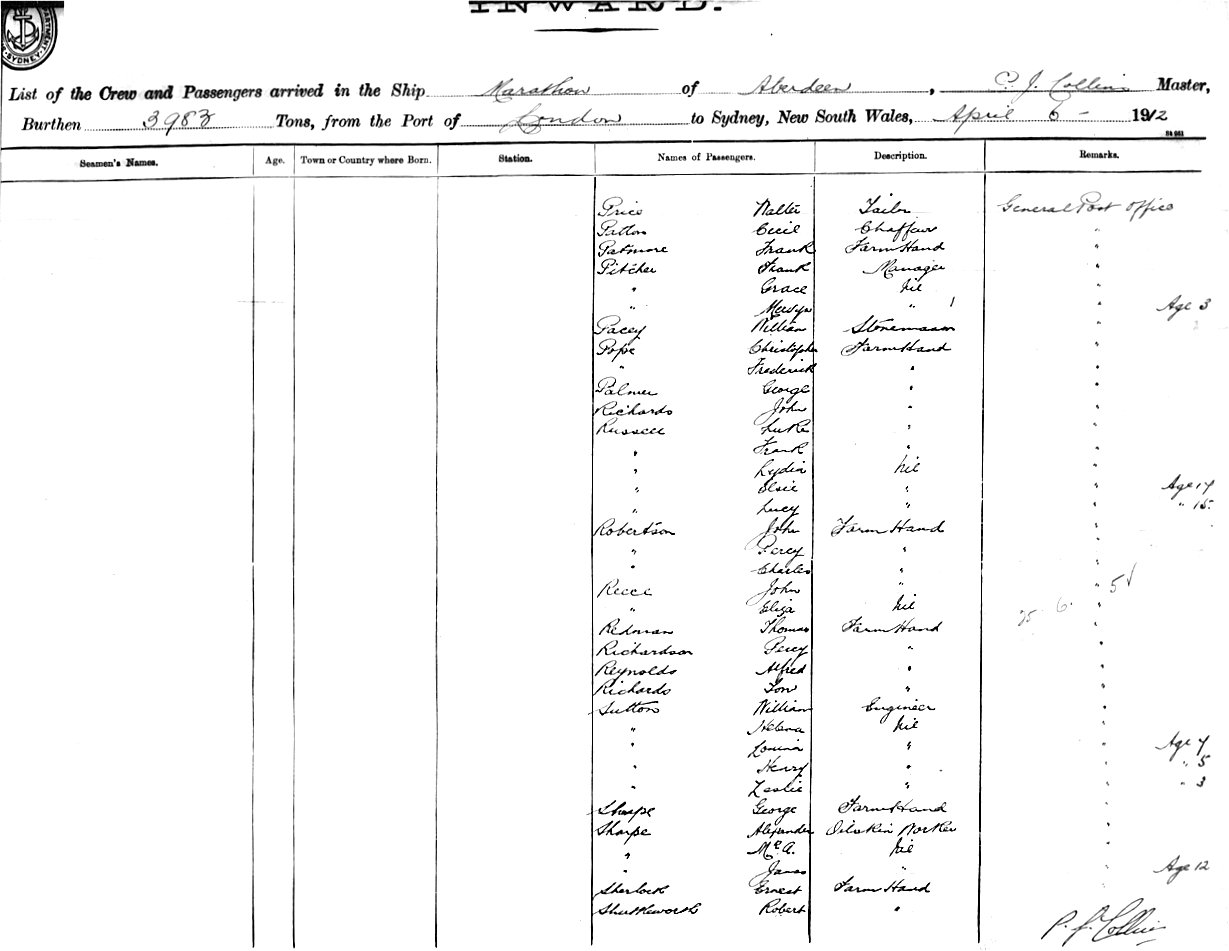 INWARD.
SYDNEY
List of the Crew and Passengers arrived in the Ship Marathon of Aberdeen, C. J. Collins Master,
Burthen 3983 Tons, from the Port of London to Sydney, New South Wales, April 6 - 1912
Seamen's Names. Age. Town or Country where Born. Station. Names of Passengers. Description. Remarks.
Price Walter Tailor General Post Office
Patton Cecil Chaffeur "
Patmore Frank Farm Hand "
Pitcher Frank Manager "
" Grace Nil "
" Mervyn " " Age 3
Pacey William Stonemason "
Pope Christopher Farm Hand "
" Frederick " "
Palmer George " "
Richards John " "
Russell Luke " "
" Frank " "
" Lydia Nil "
" Elsie " " Age 17
" Lucy " " " 15.
Robertson John Farm Hand "
" Percy " "
" Charles " "
Reece John " "
" Eliza Nil "
Redman Thomas Farm Hand "
Richardson Percy " "
Reynolds Alfred " "
Richards Tom " "
Sutton William Engineer "
" Helena Nil "
" Louisa " " Age 7
" Henry " " " 5
" Leslie " " " 3
Sharpe George Farm Hand "
Sharpe Alexander Oilskin Worker "
" Nil "
" James " " Age 12
Sherlock Ernest Farm Hand "
Shuttleworth Robert "